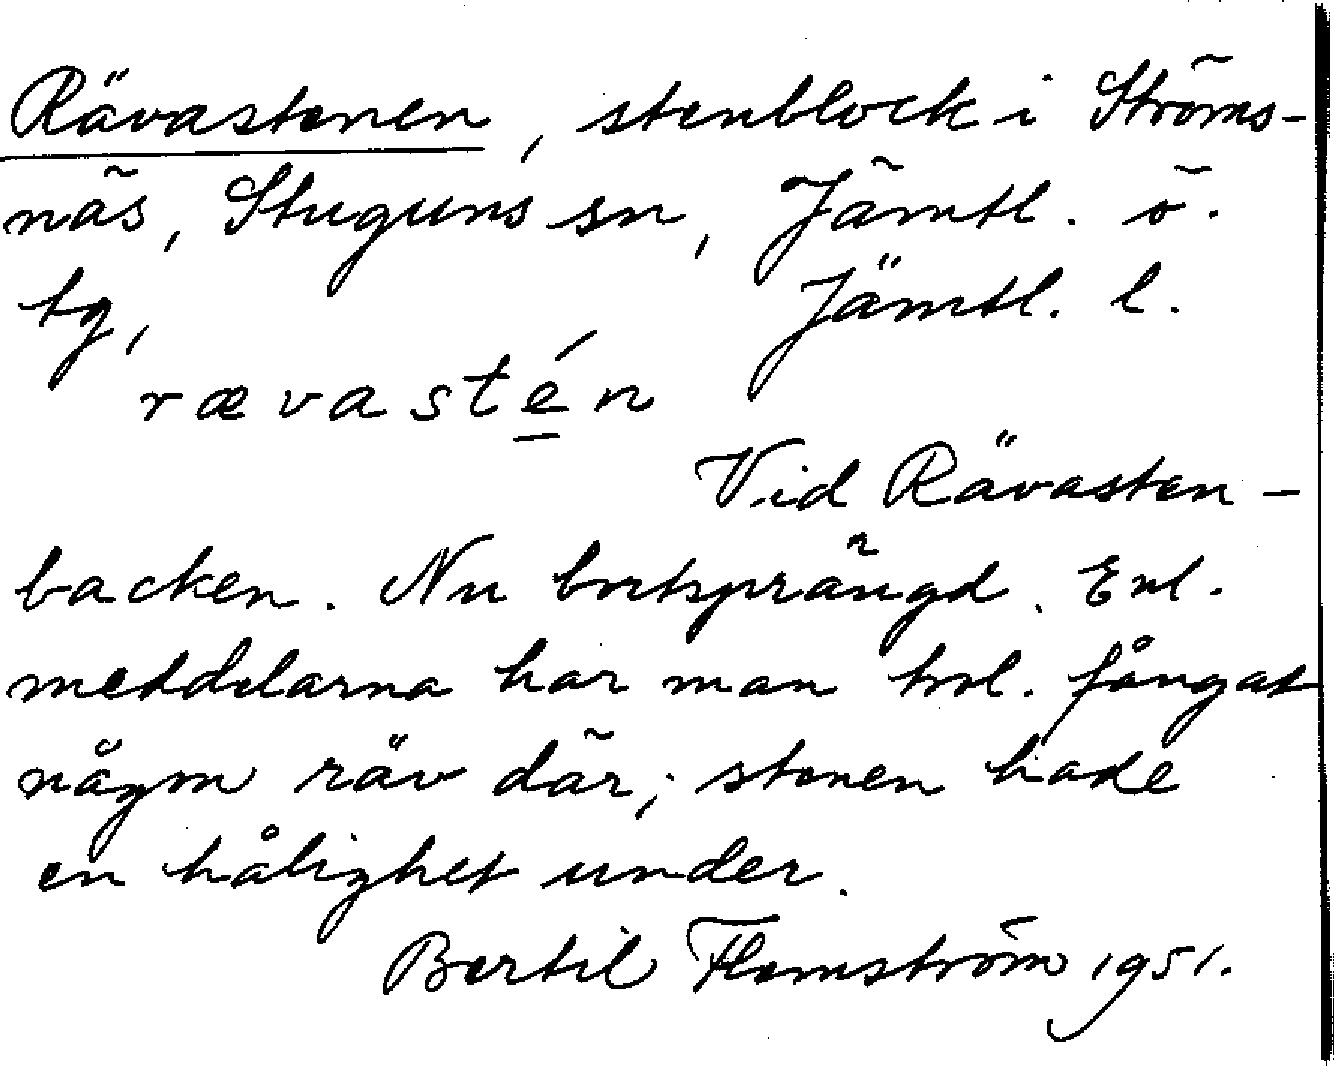 Rävastenen, stenblock i Ströms-
näs, Stuguns sn, Jämtl. ö.
tg, Jämtl. l.
rævastén
Vid Rävasten-
backen. Nu bortsprängd. Enl.
meddelarna har man trol. fångat
någon räv där; stenen hade
en hålighet under.
Bertil Flemström 1951.